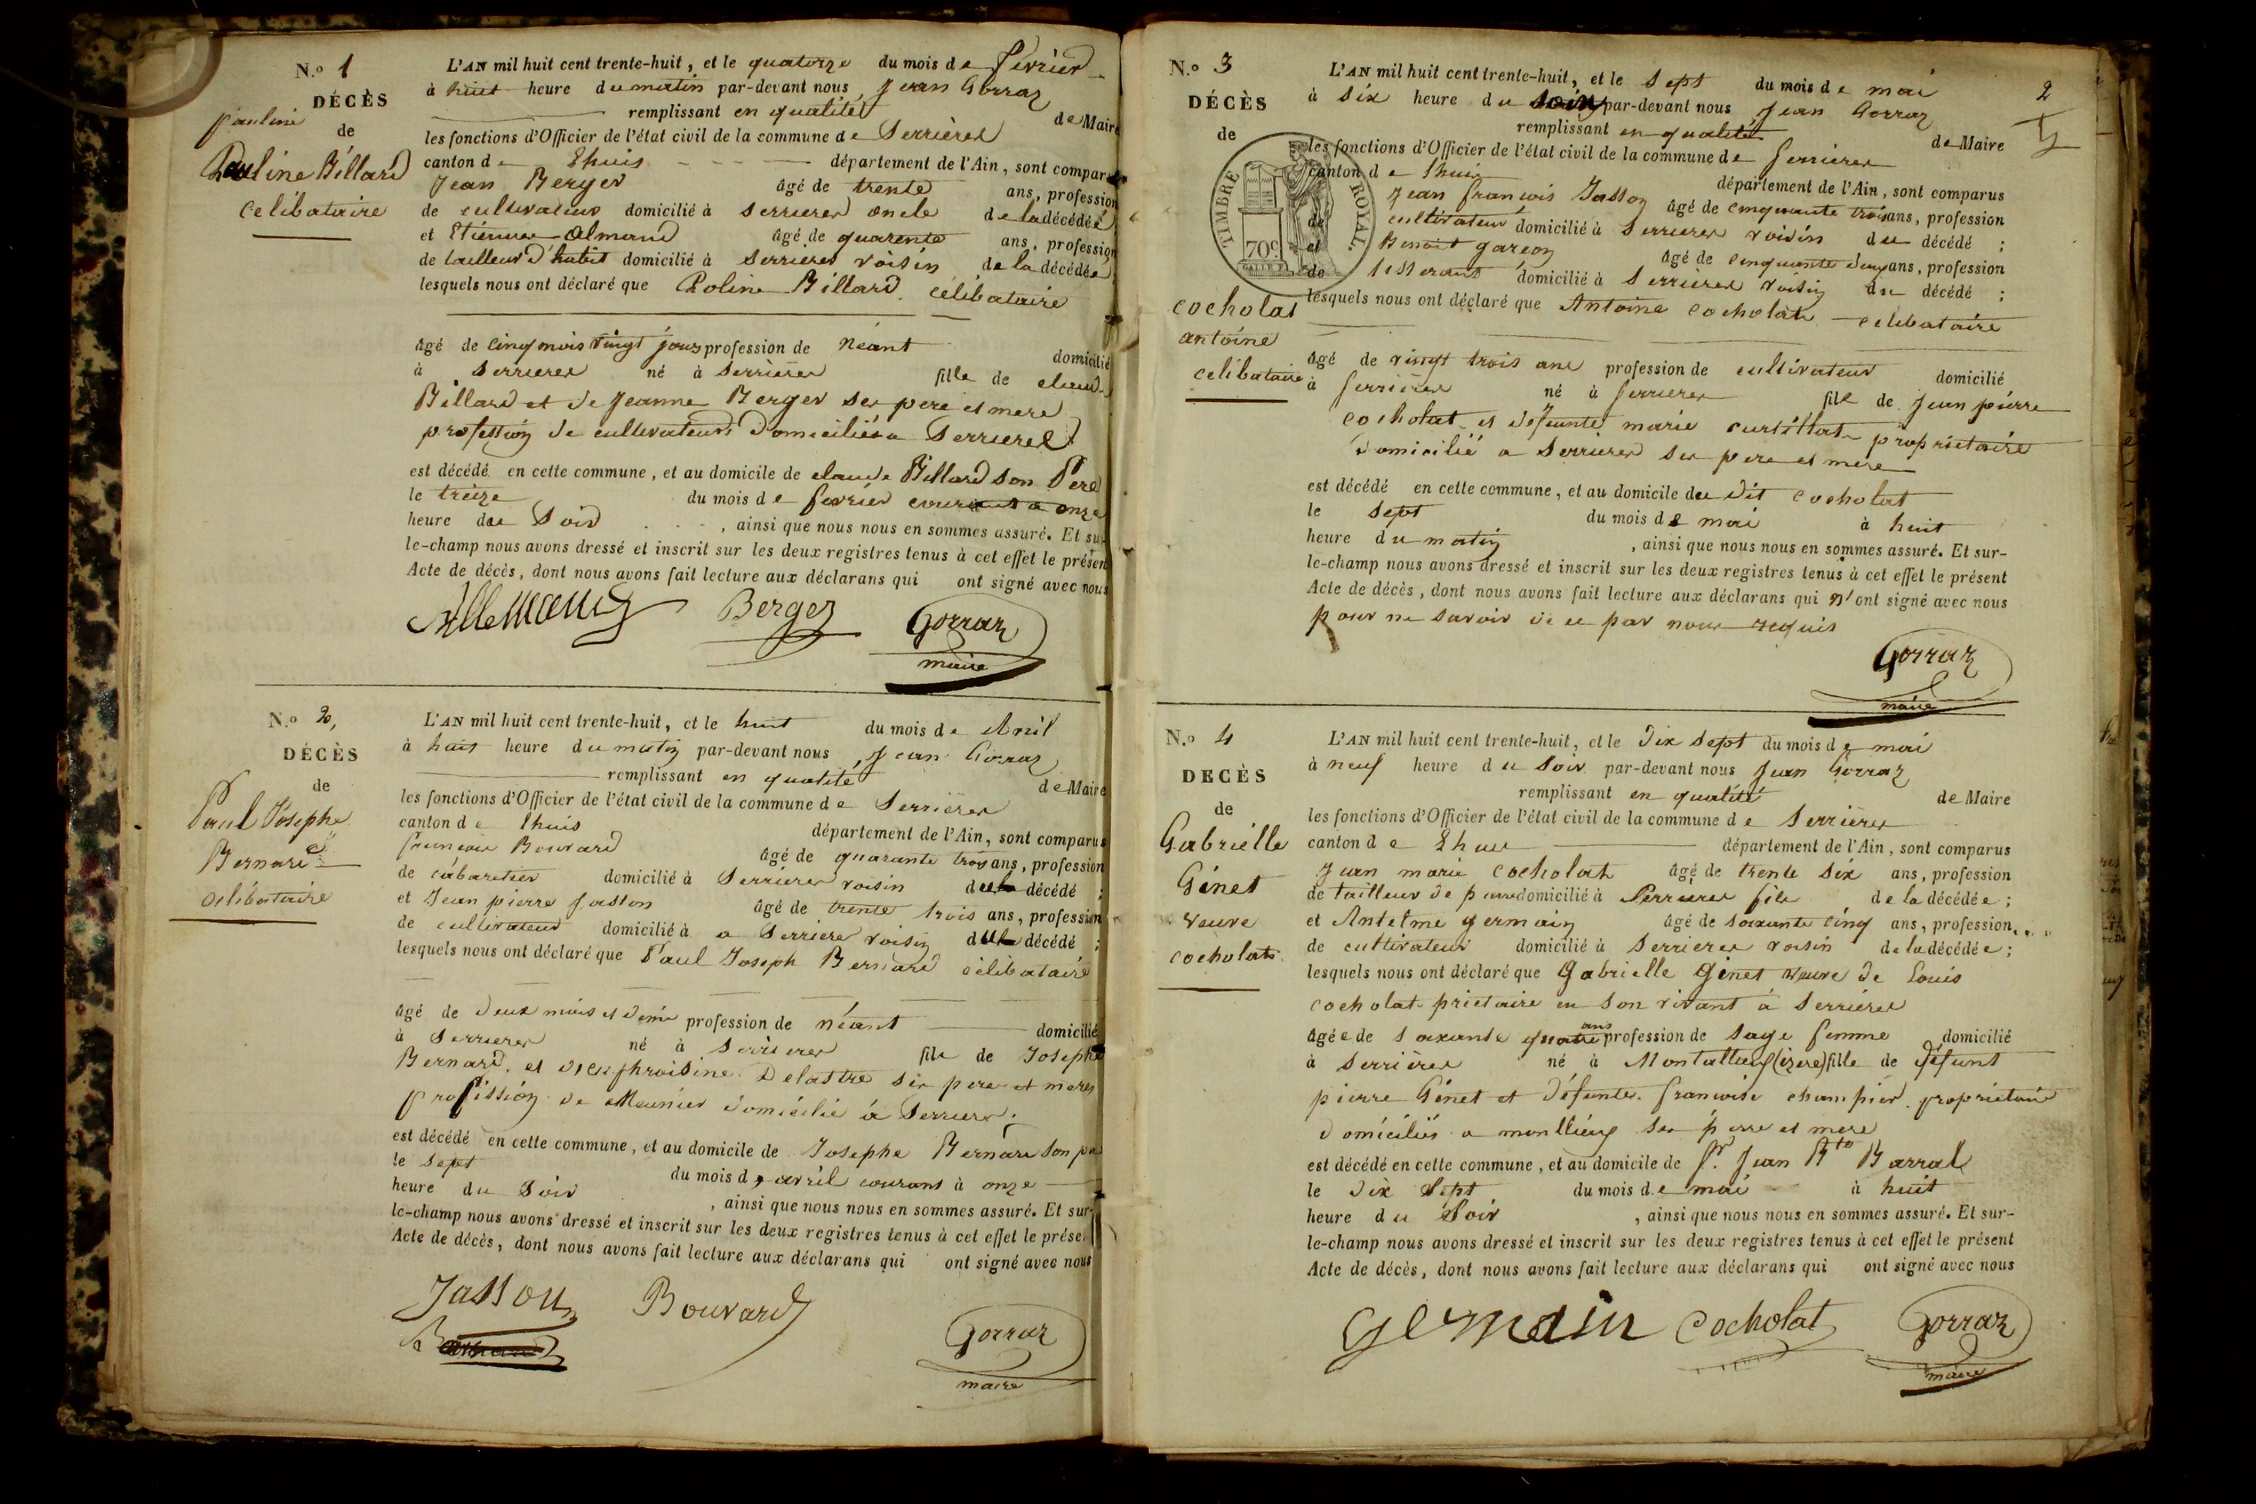 N.º 1
DÉCÈS
pauline
de
Pauline Billard
celibataire
L'AN mil huit cent trente-huit, et le quatorze du mois de février
à huit heure du matin par-devant nous Jean Gorraz
remplissant en qualité de Maire
les fonctions d'Officier de l'état civil de la commune de Serrières
canton de Lhuis département de l'Ain, sont comparus
Jean Berger âgé de trente ans, profession
de cultivateur domicilié à Serrieres oncle de la décédée
et Etienne Almand âgé de quarente ans, profession
de tailleur d'habit domicilié à Serrieres voisin de la décédée
lesquels nous ont déclaré que Poline Billard célibataire
âgé de cinq mois vingt jours profession de néant domicilié
à Serrieres né à Serrieres fille de claude
Billard et de Jeanne Berger ses pere et mere
profession de cultivateurs domiciliés a Serrieres
est décédé en cette commune, et au domicile de claude Billard son Pere
le treize du mois de février courant a onze
heure du Soir, ainsi que nous nous en sommes assuré. Et sur-
le-champ nous avons dressé et inscrit sur les deux registres tenus à cet effet le présent
Acte de décès, dont nous avons fait lecture aux déclarans qui ont signé avec nous
Allemand Berger Gorraz
maire
N.º 2,
DÉCÈS
de
Paul Josephe
Bernard
célibataire
L'AN mil huit cent trente-huit, et le huit du mois de Avril
à huit heure du matin par-devant nous, Jean Gorraz
remplissant en qualité de Maire
les fonctions d'Officier de l'état civil de la commune de Serrières
canton de Lhuis département de l'Ain, sont comparus
francois Bouvard âgé de quarante trois ans, profession
de cabaretier domicilié à Serrieres voisin du décédé ;
et Jean pierre Jasson âgé de trente trois ans, profession
de cultivateur domicilié à a Serriere voisin du décédé ;
lesquels nous ont déclaré que Paul Joseph Bernard célibataire
âgé de deux mois et demi profession de néant domicilié
à Serrieres né à Serrieres fils de Josephe
Bernard et de euphroisine Delastre ses pere et meres
profission de Meunier domicilié à Serrieres.
est décédé en cette commune, et au domicile de Josephe Bernard son pe
le sept du mois de avril courant à onze
heure du Soir, ainsi que nous nous en sommes assuré. Et sur-
le-champ nous avons dressé et inscrit sur les deux registres tenus à cet effet le présent
Acte de décès, dont nous avons fait lecture aux déclarans qui ont signé avec nous
Jasson Bouvard
Gorraz
maire
2
N.º 3
DÉCÈS
de
TIMBRE ROYAL.
70c.
cocholat
antoine
celibataire
L'AN mil huit cent trente-huit, et le sept du mois de mai
à six heure du soir par-devant nous Jean Gorraz
remplissant en qualité de Maire
les fonctions d'Officier de l'état civil de la commune de serrieres
canton de lhuis département de l'Ain, sont comparus
Jean francois Jasson âgé de cinquante trois ans, profession
de cultivateur domicilié à Serrieres voisin du décédé ;
et Benoit garcon âgé de cinquante deux ans, profession
de tisserant domicilié à Serrieres voisin du décédé ;
lesquels nous ont déclaré que Antoine cocholat celibataire
âgé de vingt trois ans profession de cultivateur domicilié
à serrieres né à serrieres fils de Jean pierre
cocholat et defeunte marie curtillat proprietaire
domicilié a Serrieres ses pere et mere
est décédé en cette commune, et au domicile du dit cocholat
le sept du mois de mai à huit
heure du matin, ainsi que nous nous en sommes assuré. Et sur-
le-champ nous avons dressé et inscrit sur les deux registres tenus à cet effet le présent
Acte de décès, dont nous avons fait lecture aux déclarans qui n'ont signé avec nous
pour ne savoir de ce par nous requis
Gorraz
maire
N.º 4
DECÈS
de
Gabrielle
Génet
veuve
cocholat
L'AN mil huit cent trente-huit, et le dix sept du mois de mai
à neuf heure du soir par-devant nous Jean Gorraz
remplissant en qualité de Maire
les fonctions d'Officier de l'état civil de la commune de Serrieres
canton de Lhuis département de l'Ain, sont comparus
Jean marie cocholat âgé de trente six ans, profession
de tailleur de pierre domicilié à Serrieres fils de la décédée ;
et Antelme germain âgé de soixante cinq ans, profession
de cultivateur domicilié à Serrieres voisin de la décédée ;
lesquels nous ont déclaré que Gabrielle Génet veuve de Louis
cocholat prietaire en son vivant à Serrières
âgée de soixante quatre ans profession de sage femme domicilié
à Serrières né à Montalieu (izere) fille de défunt
pierre Génet et défunte francoise champier proprietaire
domiciliés a ses pere et mere
est décédé en cette commune, et au domicile de Sr. Jean Bte Barral
le dix sept du mois de mai à huit
heure du Soir, ainsi que nous nous en sommes assuré. Et sur-
le-champ nous avons dressé et inscrit sur les deux registres tenus à cet effet le présent
Acte de décès, dont nous avons fait lecture aux déclarans qui ont signé avec nous
germain Cocholat Gorraz
maire